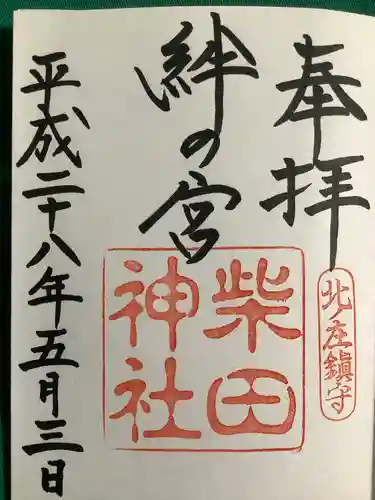 奉拝
北ノ庄鎮守
絆の宮
柴田
神社
平成二十八年五月三日